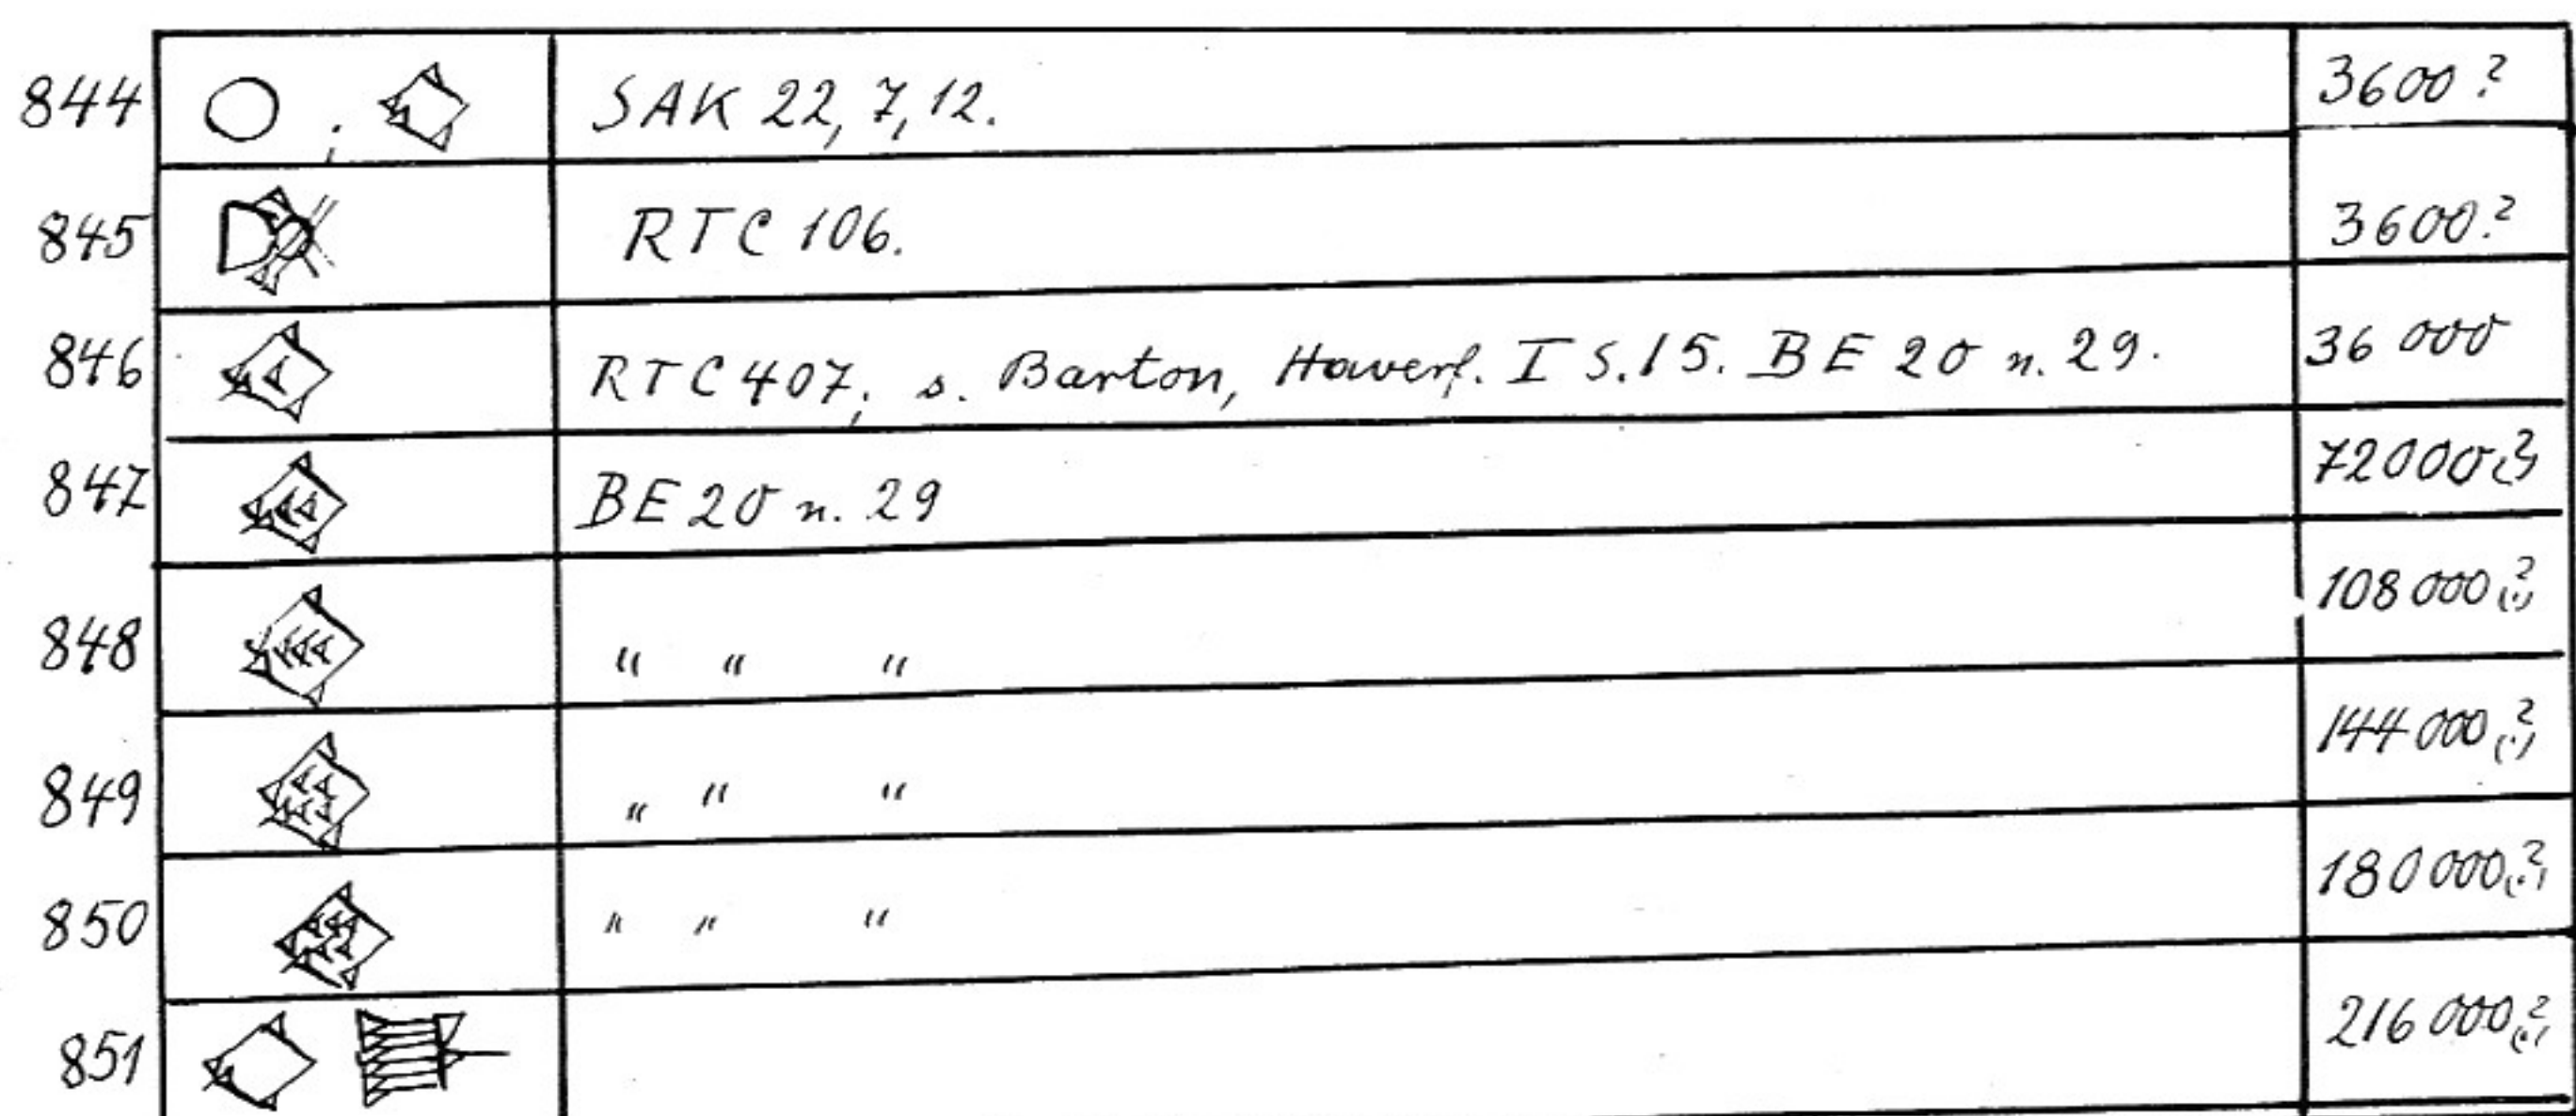 844 SAK 22, 7, 12. 3600?
845 RTC 106. 3600?
846 RTC 407; s. Barton, Haverf. I S. 15. BE 20 n. 29. 36 000
847 BE 20 n. 29 72000(?)
848 " " " 108 000(?)
849 " " " 144 000(?)
850 " " " 180 000(?)
851 216 000(?)